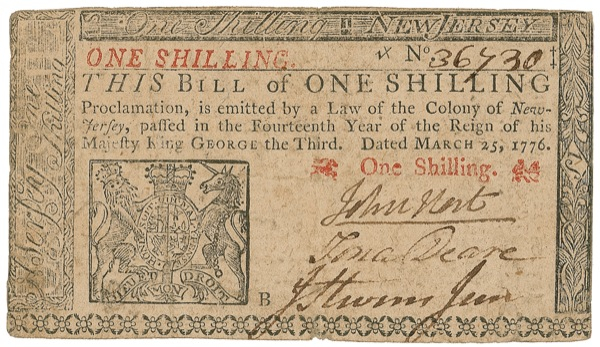 One Shilling NEW JERSEY
ONE SHILLING. No 36730
THIS BILL of ONE SHILLING
Proclamation, is emitted by a Law of the Colony of New-
Jersey, paſſed in the Fourteenth Year of the Reign of his
Majeſty King GEORGE the Third. Dated MARCH 25, 1776.
One Shilling.
John Hart
Jona Deare
J Stevens Junr
B
DIEU ET MON DROIT
N. Jersey One
Shilling